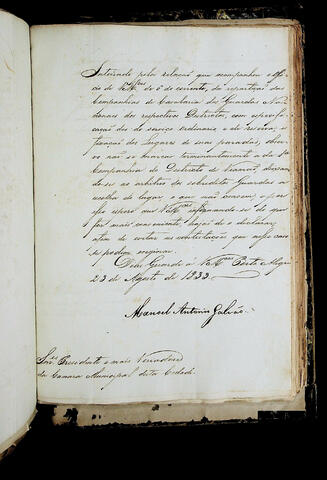 Inteirado pela relação que acompanhou o offi-
cio de V.Mces de 6 do corrente, da repartição das
Companhias de Cavallaria das Guardas Naci-
onaes dos respectivos Districtos, com a
ção das do serviço ordinario e da reserva, e
dos lugares de suas paradas, obser-
vo não se marcar terminantemente a da
Companhia do Districto de Viamão, deixan-
do-se ao arbitrio dos sobreditos Guardas a
escolha do lugar, o que não convem; e por
isso espero que V.Mces informando-se do que
for mais conveniente, hajão de o declarar,
afim de evitar as contestações que nesse caso
se podem originar.
Deos Guarde a V.Mces Porto Alegre
23 de Agosto de 1833
Manoel Antonio Galvão
Snres Presidente e mais Vereadores
da Camara Municipal desta Cidade.